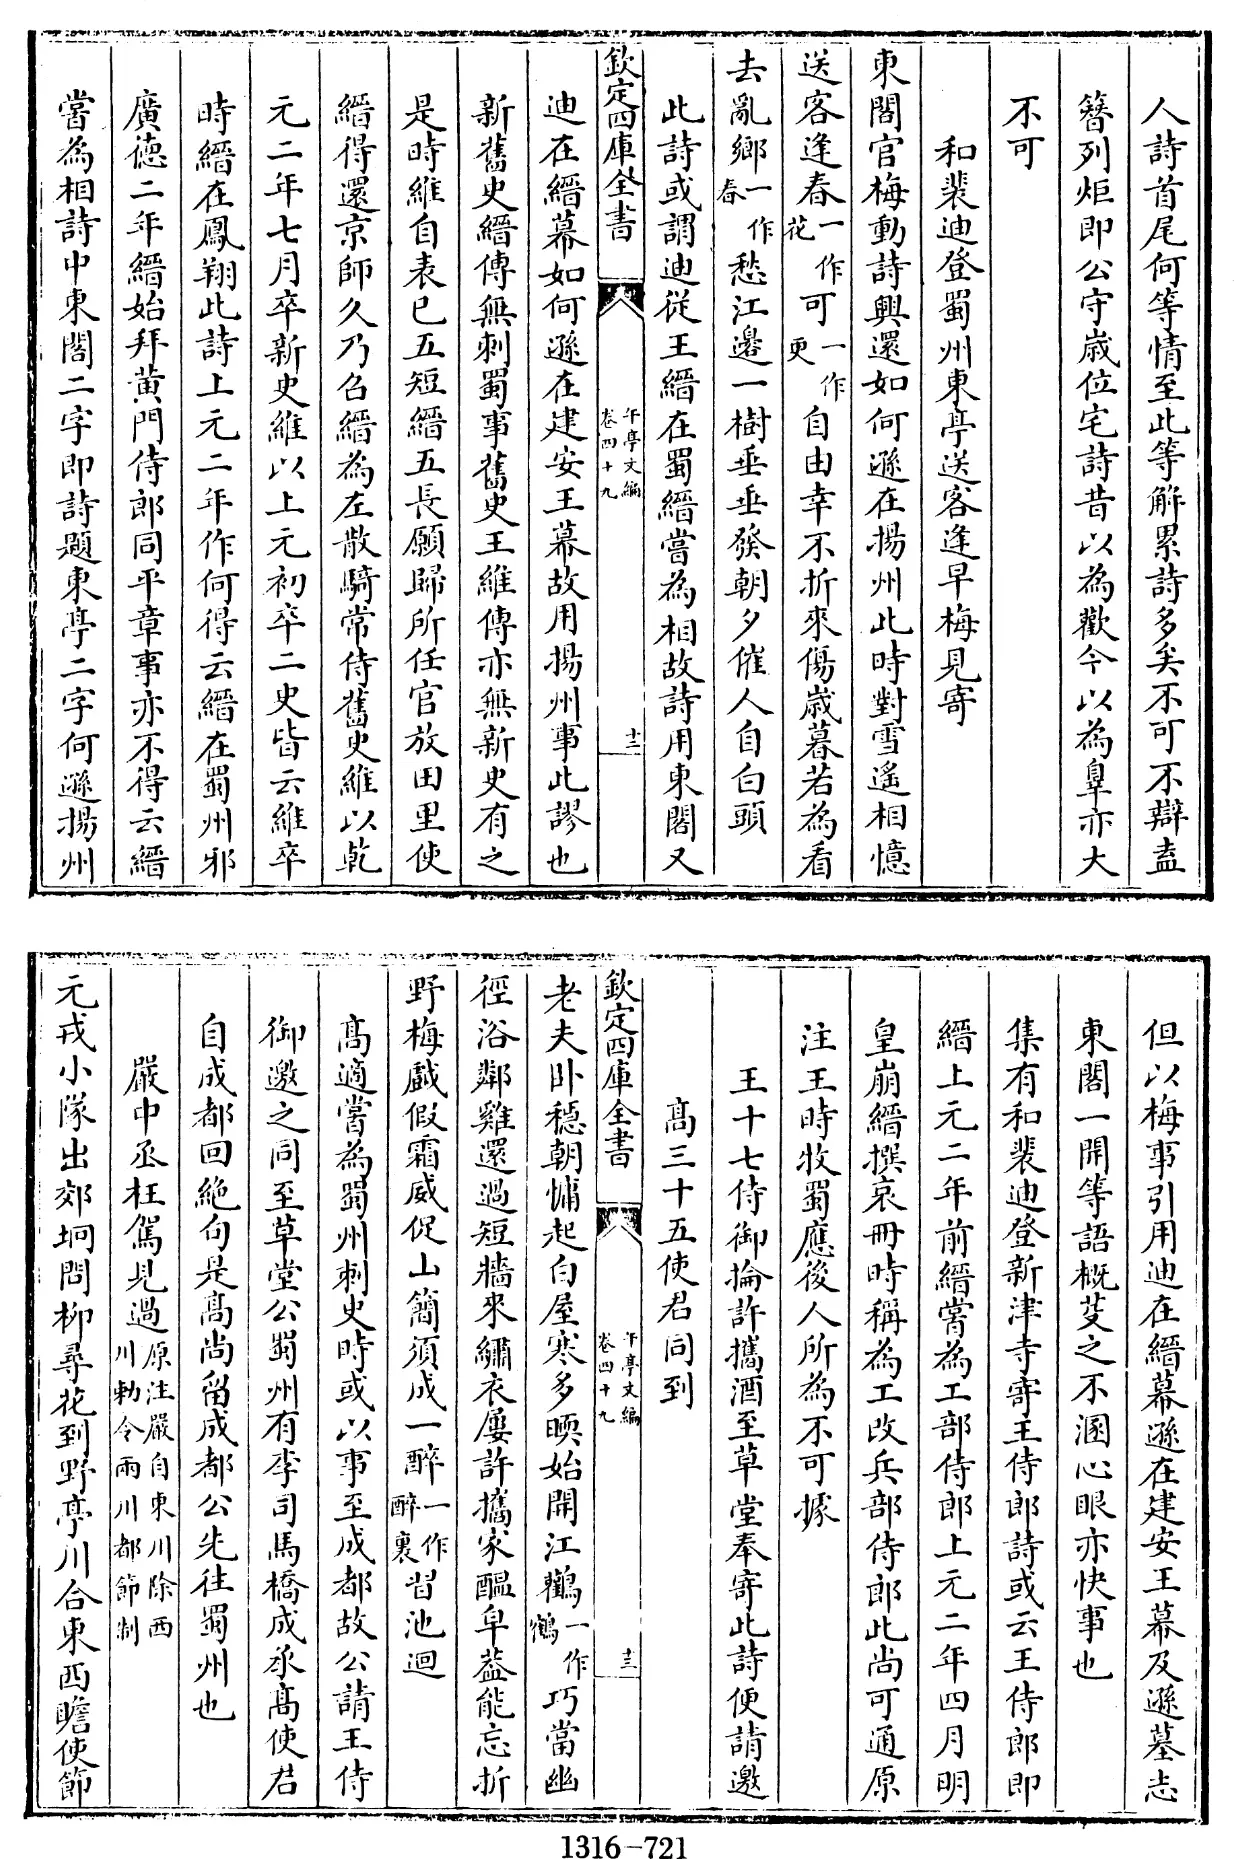 人詩首尾何等情至此等解累詩多矣不可不辯盍
簪列炬即公守歲位宅詩昔以為歡今以為辠亦大
不可
和裴迪登蜀州東亭送客逢早梅見寄
東閣官梅動詩興還如何遜在揚州此時對雪遙相憶
送客逢春一作花可一作更自由幸不折來傷歲暮若為看
去亂鄉一作春愁江邊一樹垂垂發朝夕催人自白頭
此詩或謂迪從王縉在蜀縉嘗為相故詩用東閣又
欽定四庫全書
午亭文編
卷四十九
十二
迪在縉幕如何遜在建安王幕故用揚州事此謬也
新舊史縉傳無刺蜀事舊史王維傳亦無新史有之
是時維自表已五短縉五長願歸所任官放田里使
縉得還京師久乃召縉為左散騎常侍舊史維以乾
元二年七月卒新史維以上元初卒二史皆云維卒
時縉在鳳翔此詩上元二年作何得云縉在蜀州邪
廣德二年縉始拜黃門侍郎同平章事亦不得云縉
嘗為相詩中東閣二字即詩題東亭二字何遜揚州
但以梅事引用迪在縉幕遜在建安王幕及遜墓志
東閣一開等語概芟之不溷心眼亦快事也
集有和裴迪登新津寺寄王侍郎詩或云王侍郎即
縉上元二年前縉嘗為工部侍郎上元二年四月明
皇崩縉撰哀冊時稱為工改兵部侍郎此尚可通原
注王時牧蜀應後人所為不可據
王十七侍御掄許攜酒至草堂奉寄此詩便請邀
高三十五使君同到
欽定四庫全書
午亭文編
卷四十九
十三
老夫臥穩朝慵起白屋寒多暝始開江鸛一作鶴巧當幽
徑浴鄰雞還過短牆來繡衣屢許攜家醞皁蓋能忘折
野梅戲假霜威促山簡須成一醉一作醉裏習池迴
高適嘗為蜀州刺史時或以事至成都故公請王侍
御邀之同至草堂公蜀州有李司馬橋成承高使君
自成都回絶句是高尚留成都公先往蜀州也
嚴中丞枉駕見過原注嚴自東川除西川勅令兩川都節制
元戎小隊出郊坰問柳尋花到野亭川合東西瞻使節
1316-721